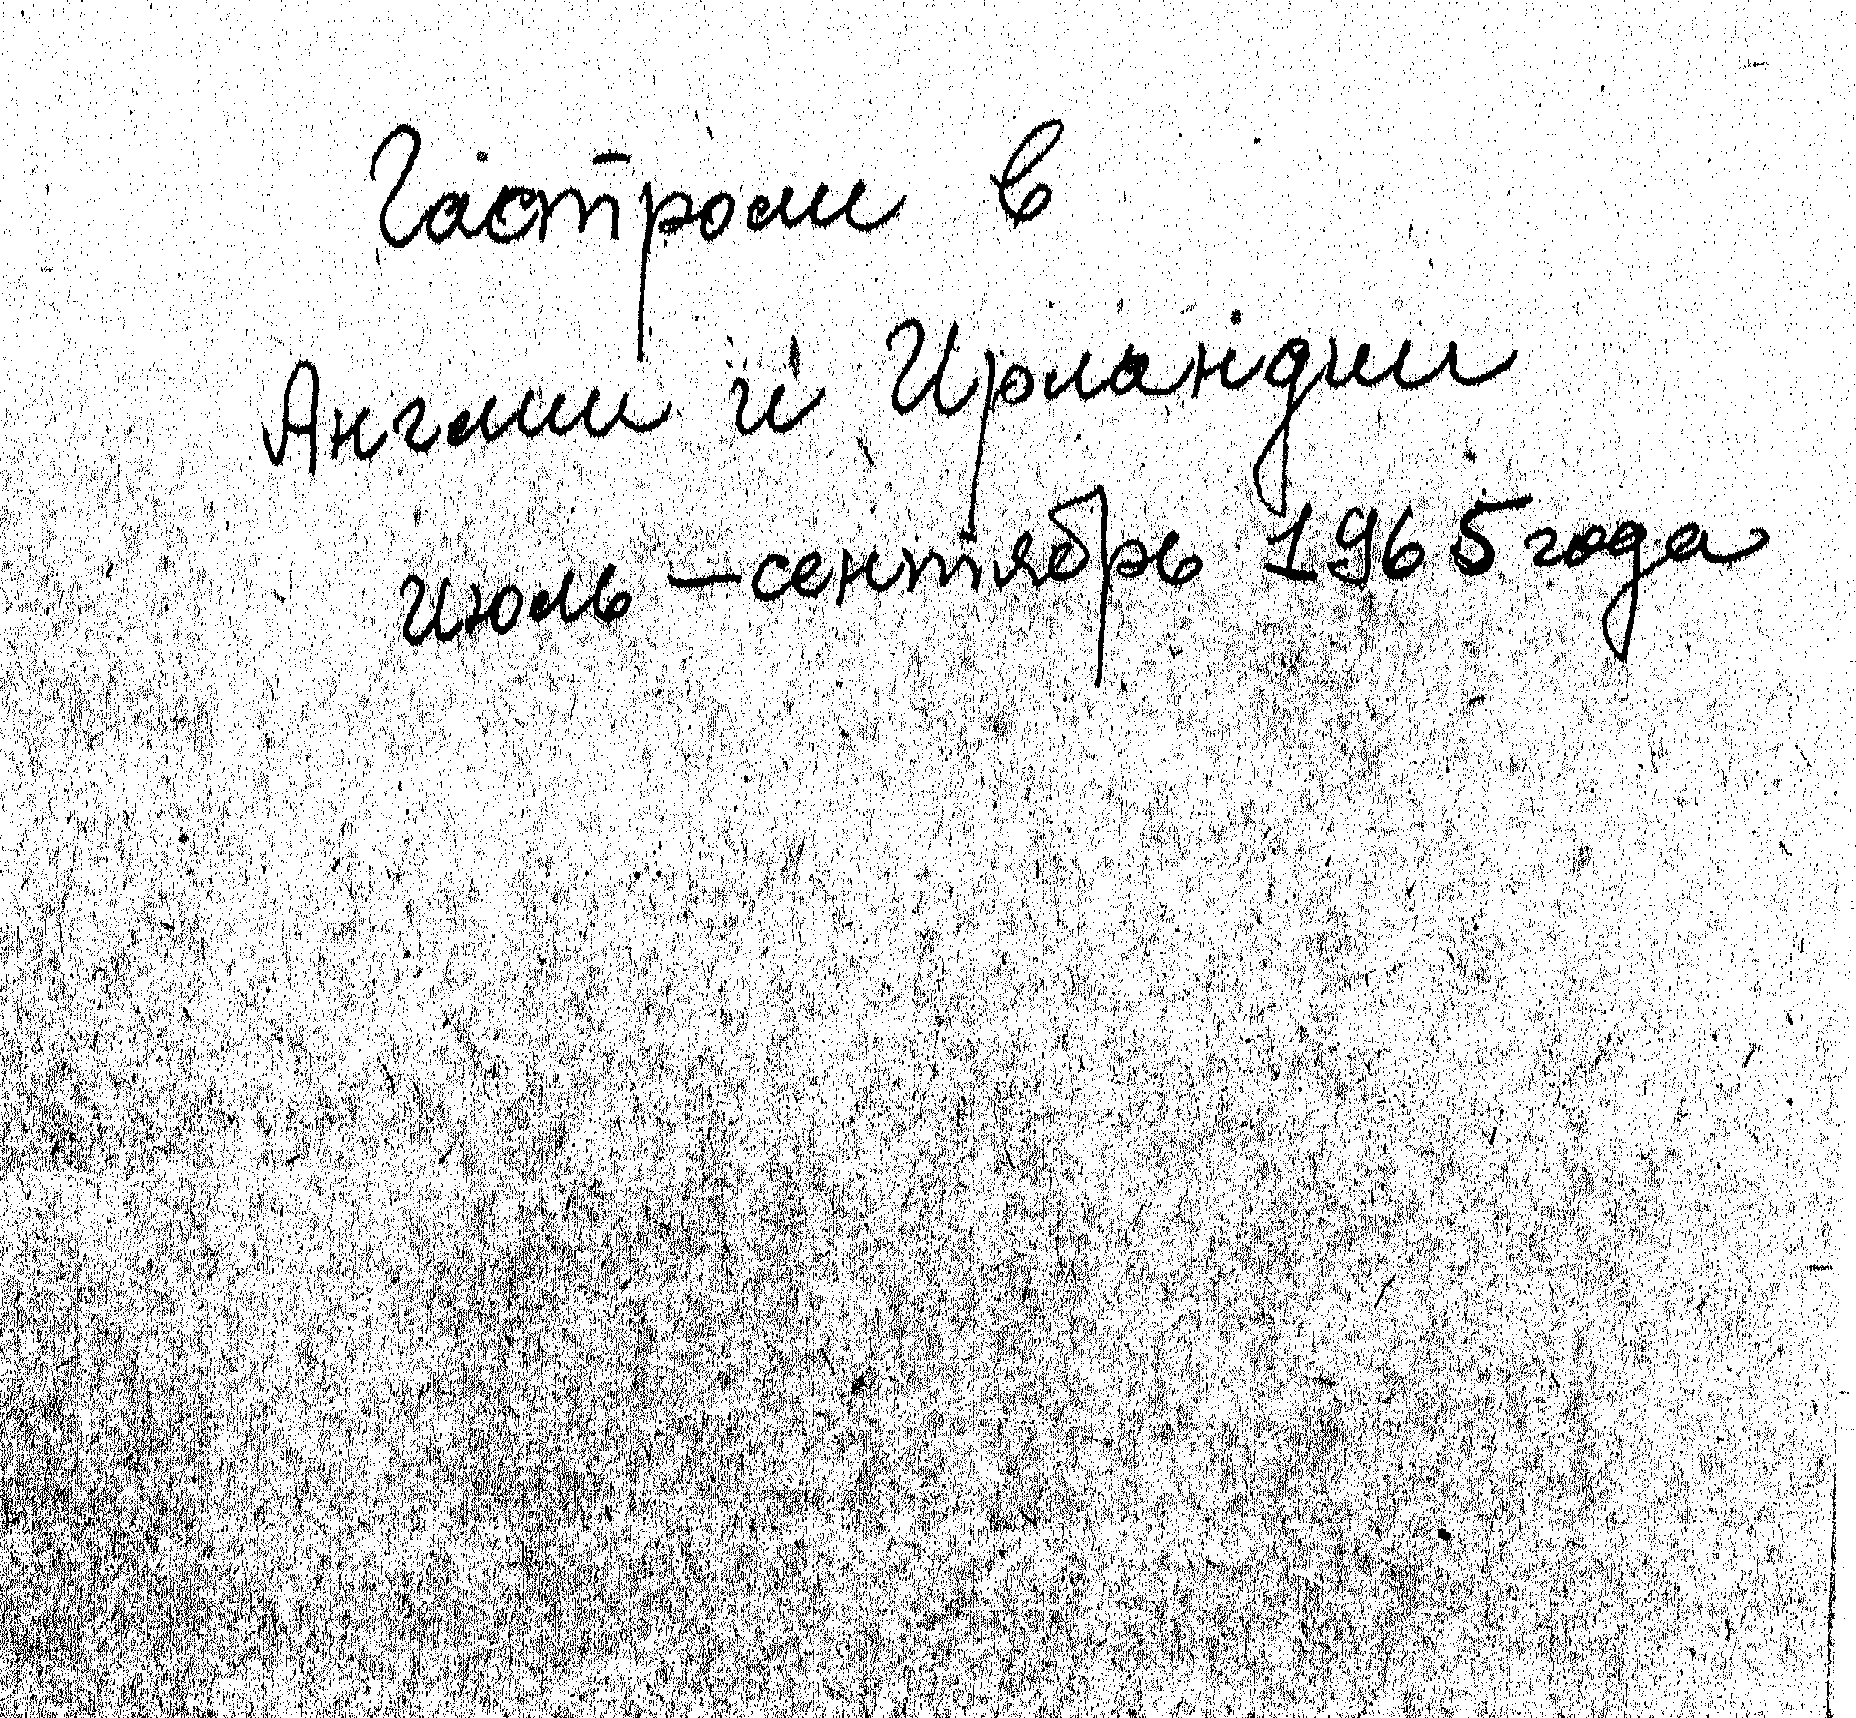 Гастроли в
Англии и Ирландии
июль — сентябрь 1965 года